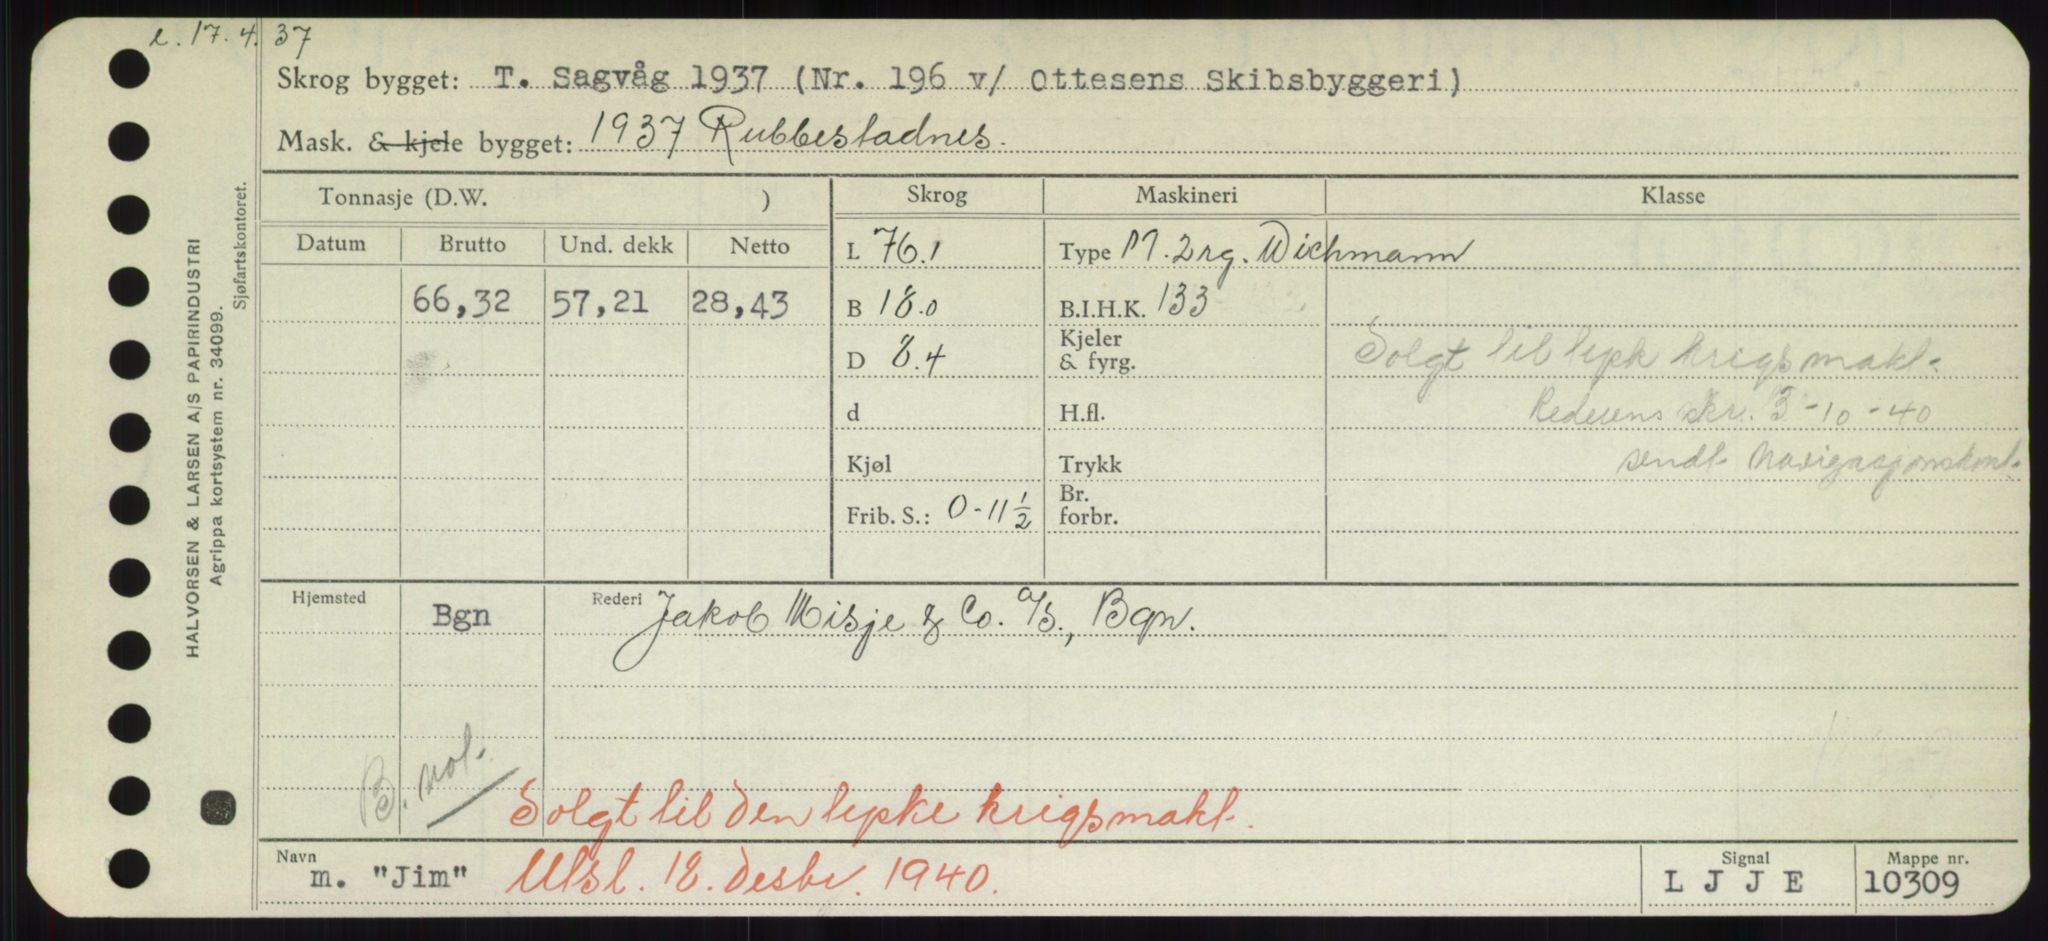 e. 17.4.37
Skrog bygget: T. Sagvåg 1937 (Nr. 196 v/ Ottesens Skibsbyggeri)
Mask. & kjele bygget: 1937 Rubbestadnes.
Tonnasje (D.W. )
Skrog
Maskineri
Klasse
Datum Brutto Und. dekk Netto
66,32 57,21 28,43
L 76.1
B 18.0
D 8.4
d
Kjøl
Frib. S.: 0-11 1/2
Type M. 2rg. Wichmann
B.I.H.K. 133
Kjeler
& fyrg.
H.fl.
Trykk
Br.
forbr.
Solgt til tysk krigsmakt.
Rederens skr. 3-10-40
sendt Navigasjonskont.
Hjemsted Bgn Rederi Jakob Misje & Co. A/S., Bgn.
B. not.
Solgt til den tyske krigsmakt.
Navn m. "Jim" Utsl. 18. desbr. 1940.
Signal L J J E
Mappe nr. 10309
HALVORSEN & LARSEN A/S PAPIRINDUSTRI
Agrippa kortsystem nr. 34099.
Sjøfartskontoret.